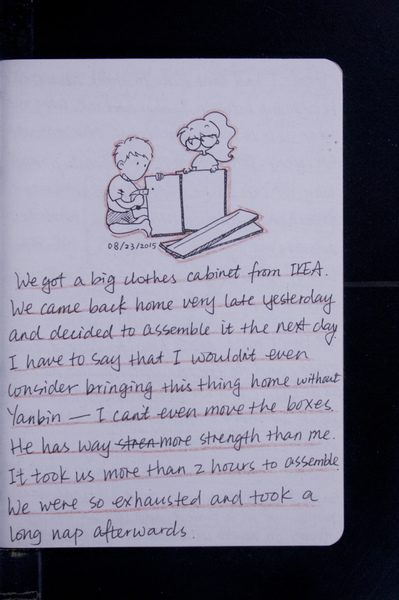 08/23/2015
We got a big clothes cabinet from IKEA.
We came back home very late yesterday
and decided to assemble it the next day.
I have to say that I wouldn't even
consider bringing this thing home without
Yanbin — I can't even move the boxes.
He has way stren more strength than me.
It took us more than 2 hours to assemble.
We were so exhausted and took a
long nap afterwards.